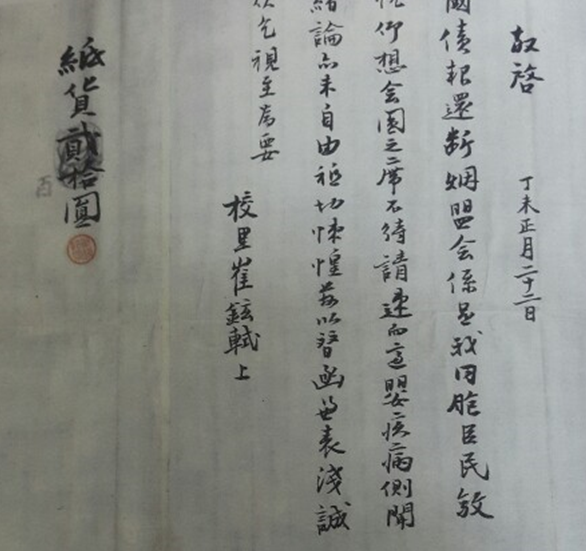 敬啓 丁未正月二十二日
國債報還断烟盟会係是我同胞臣民敵
仰想会園之二席不待請速而適嬰疾病側聞
緒論亦未自由祗切悚惶茲以替函略表淺誠
众乞視至為要
校里崔鉉軾上
紙貨貳拾圓
百